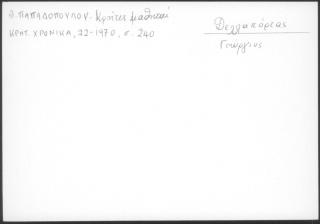 Θ. ΠΑΠΑΔΟΠΟΥΛΟΥ. Κρῆτες μαθηταί
ΚΡΗΤ. ΧΡΟΝΙΚΑ, 22-1970, σ. 240
Δελλαπόρτας
Γεώργιος